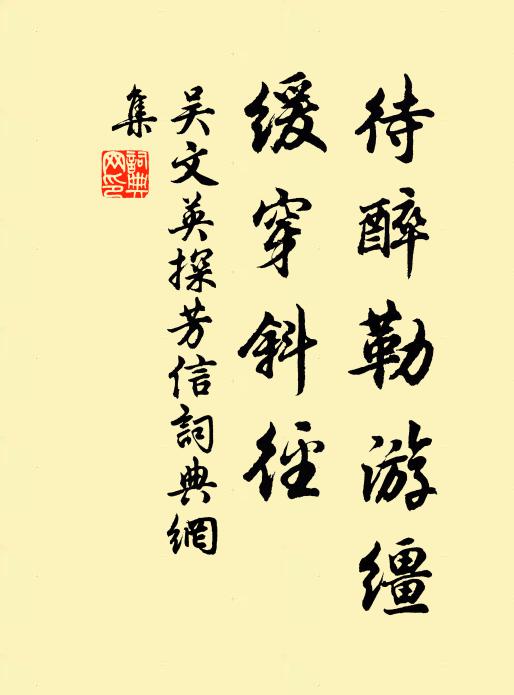 待醉勒游缰
缓穿斜径
吴文英探芳信詞典網
集
詞典網印